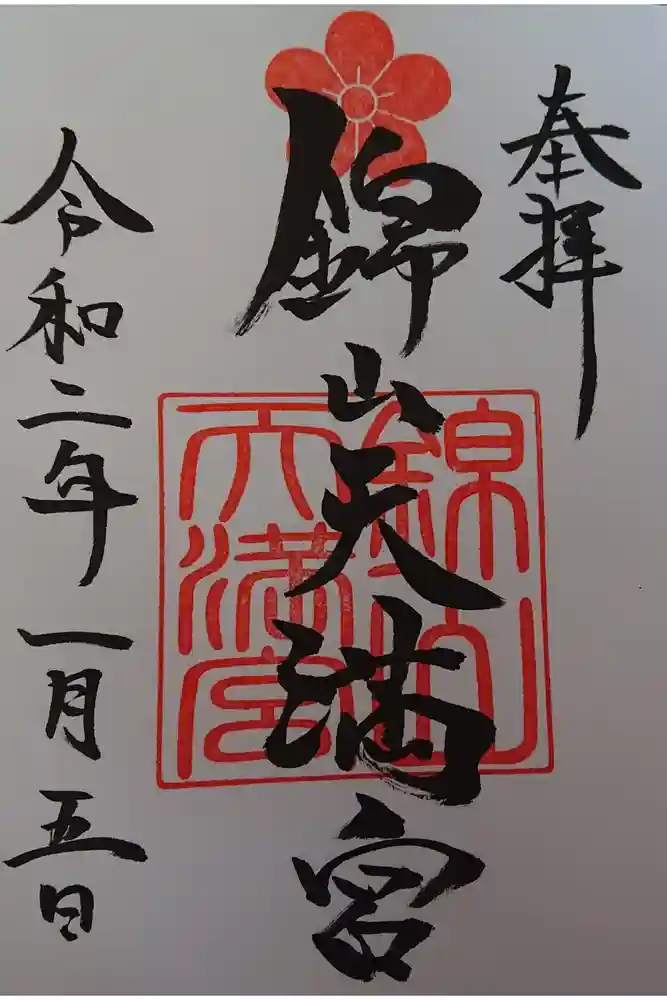 奉拝
錦山天満宮
錦山
天満宮
令和二年一月五日